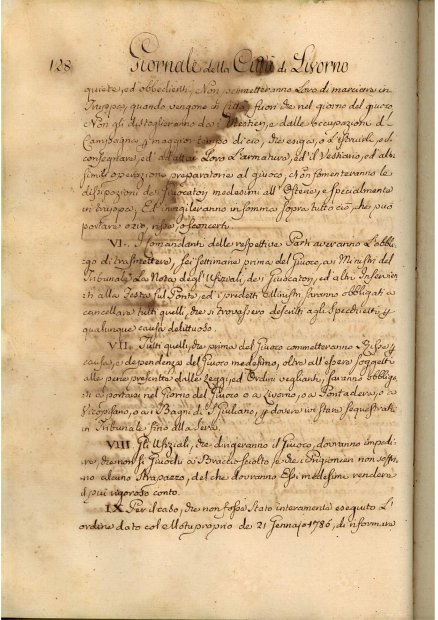 128 Giornale della Città di Livorno
quiete, ed obbedienti. Non permetteranno Loro di marciare in
Truppa, quando vengono in Città, fuori che nel giorno del giuoco,
Non gli distoglieranno da i Mestieri, e dalle occupazioni di
Campagna p maggior tempo di cio, che esiga, o L'istruirli, o il
consegnare, ed adattar Loro L'armatura, ed il Vestiario, ed al
simili operazioni preparatorie al giuoco, Non fomenteranno le
disposizioni de Giuocatori medesimi all'Osterie, e specialmente
in truppa, Ed invigileranno in somma sopra tutto ciò, che può
portare ozio, risse, o sconcerti.
VI. I Comandanti delle respettive Parti averanno L'obbli-
go di trasmettere, sei settimane prima del Giuoco, a i Ministri del
Tribunale La Nota degl'Ufiziali, de i Giuocatori, ed altri Inservien-
ti alla Festa sul Ponte, ed i predetti Ministri saranno obbligati a
cancellare tutti quelli, che si trovassero descritti agli Specchietti p
qualunque causa delittuosa.
VII. Tutti quelli, che prima del Giuoco commetteranno Risse p
causa, o dependenza del Giuoco medesimo, oltre all'essere soggetti
alle pene prescritte dalle Leggi, ed Ordini veglianti, saranno obbliga-
ti a portarsi nel Giorno del Giuoco o a Livorno, o a Pontadera, o a
Vicopisano, o a i Bagni di S. Giuliano, p dovere ivi stare sequestrati
in Tribunale fino alla sera.
VIII. Gli Ufiziali, che dirigeranno il Giuoco, dovranno impedi-
re, che non si Giuochi a Braccio sciolto, e che i Prigionieri non soffri-
no alcuno Strapazzo, del che dovranno Essi medesimi rendere
il più rigoroso conto.
IX. Per il caso, che non fosse stato interamente eseguito L'
ordine dato col Motuproprio de 21 Gennajo 1786, di riformare